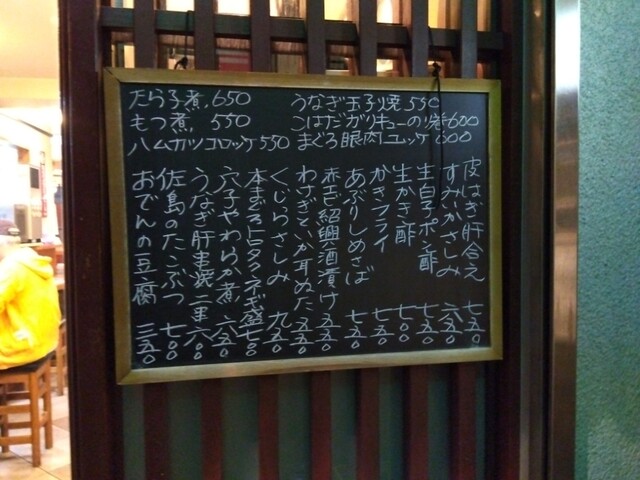 たら子煮. 650
もつ煮. 550
ハムカツコロッケ550
うなぎ玉子焼550
こはだガリキューのり巻600
まぐろ眼肉ユッケ600
皮はぎ肝合え 七五〇
すみいかさしみ 六五〇
生白子ポン酢 七五〇
生かき酢 七〇〇
かきフライ 七五〇
あぶりしめさば 七五〇
赤エビ紹興酒漬け 五五〇
わさぎといか耳ぬた 五五〇
くじらさしみ 九五〇
本まぐろトロタクネギ盛 七〇〇
穴子やわらか煮 六五〇
うなぎ肝串焼二串 六八〇
佐島のたこぶつ 七〇〇
おでんの豆腐 三五〇